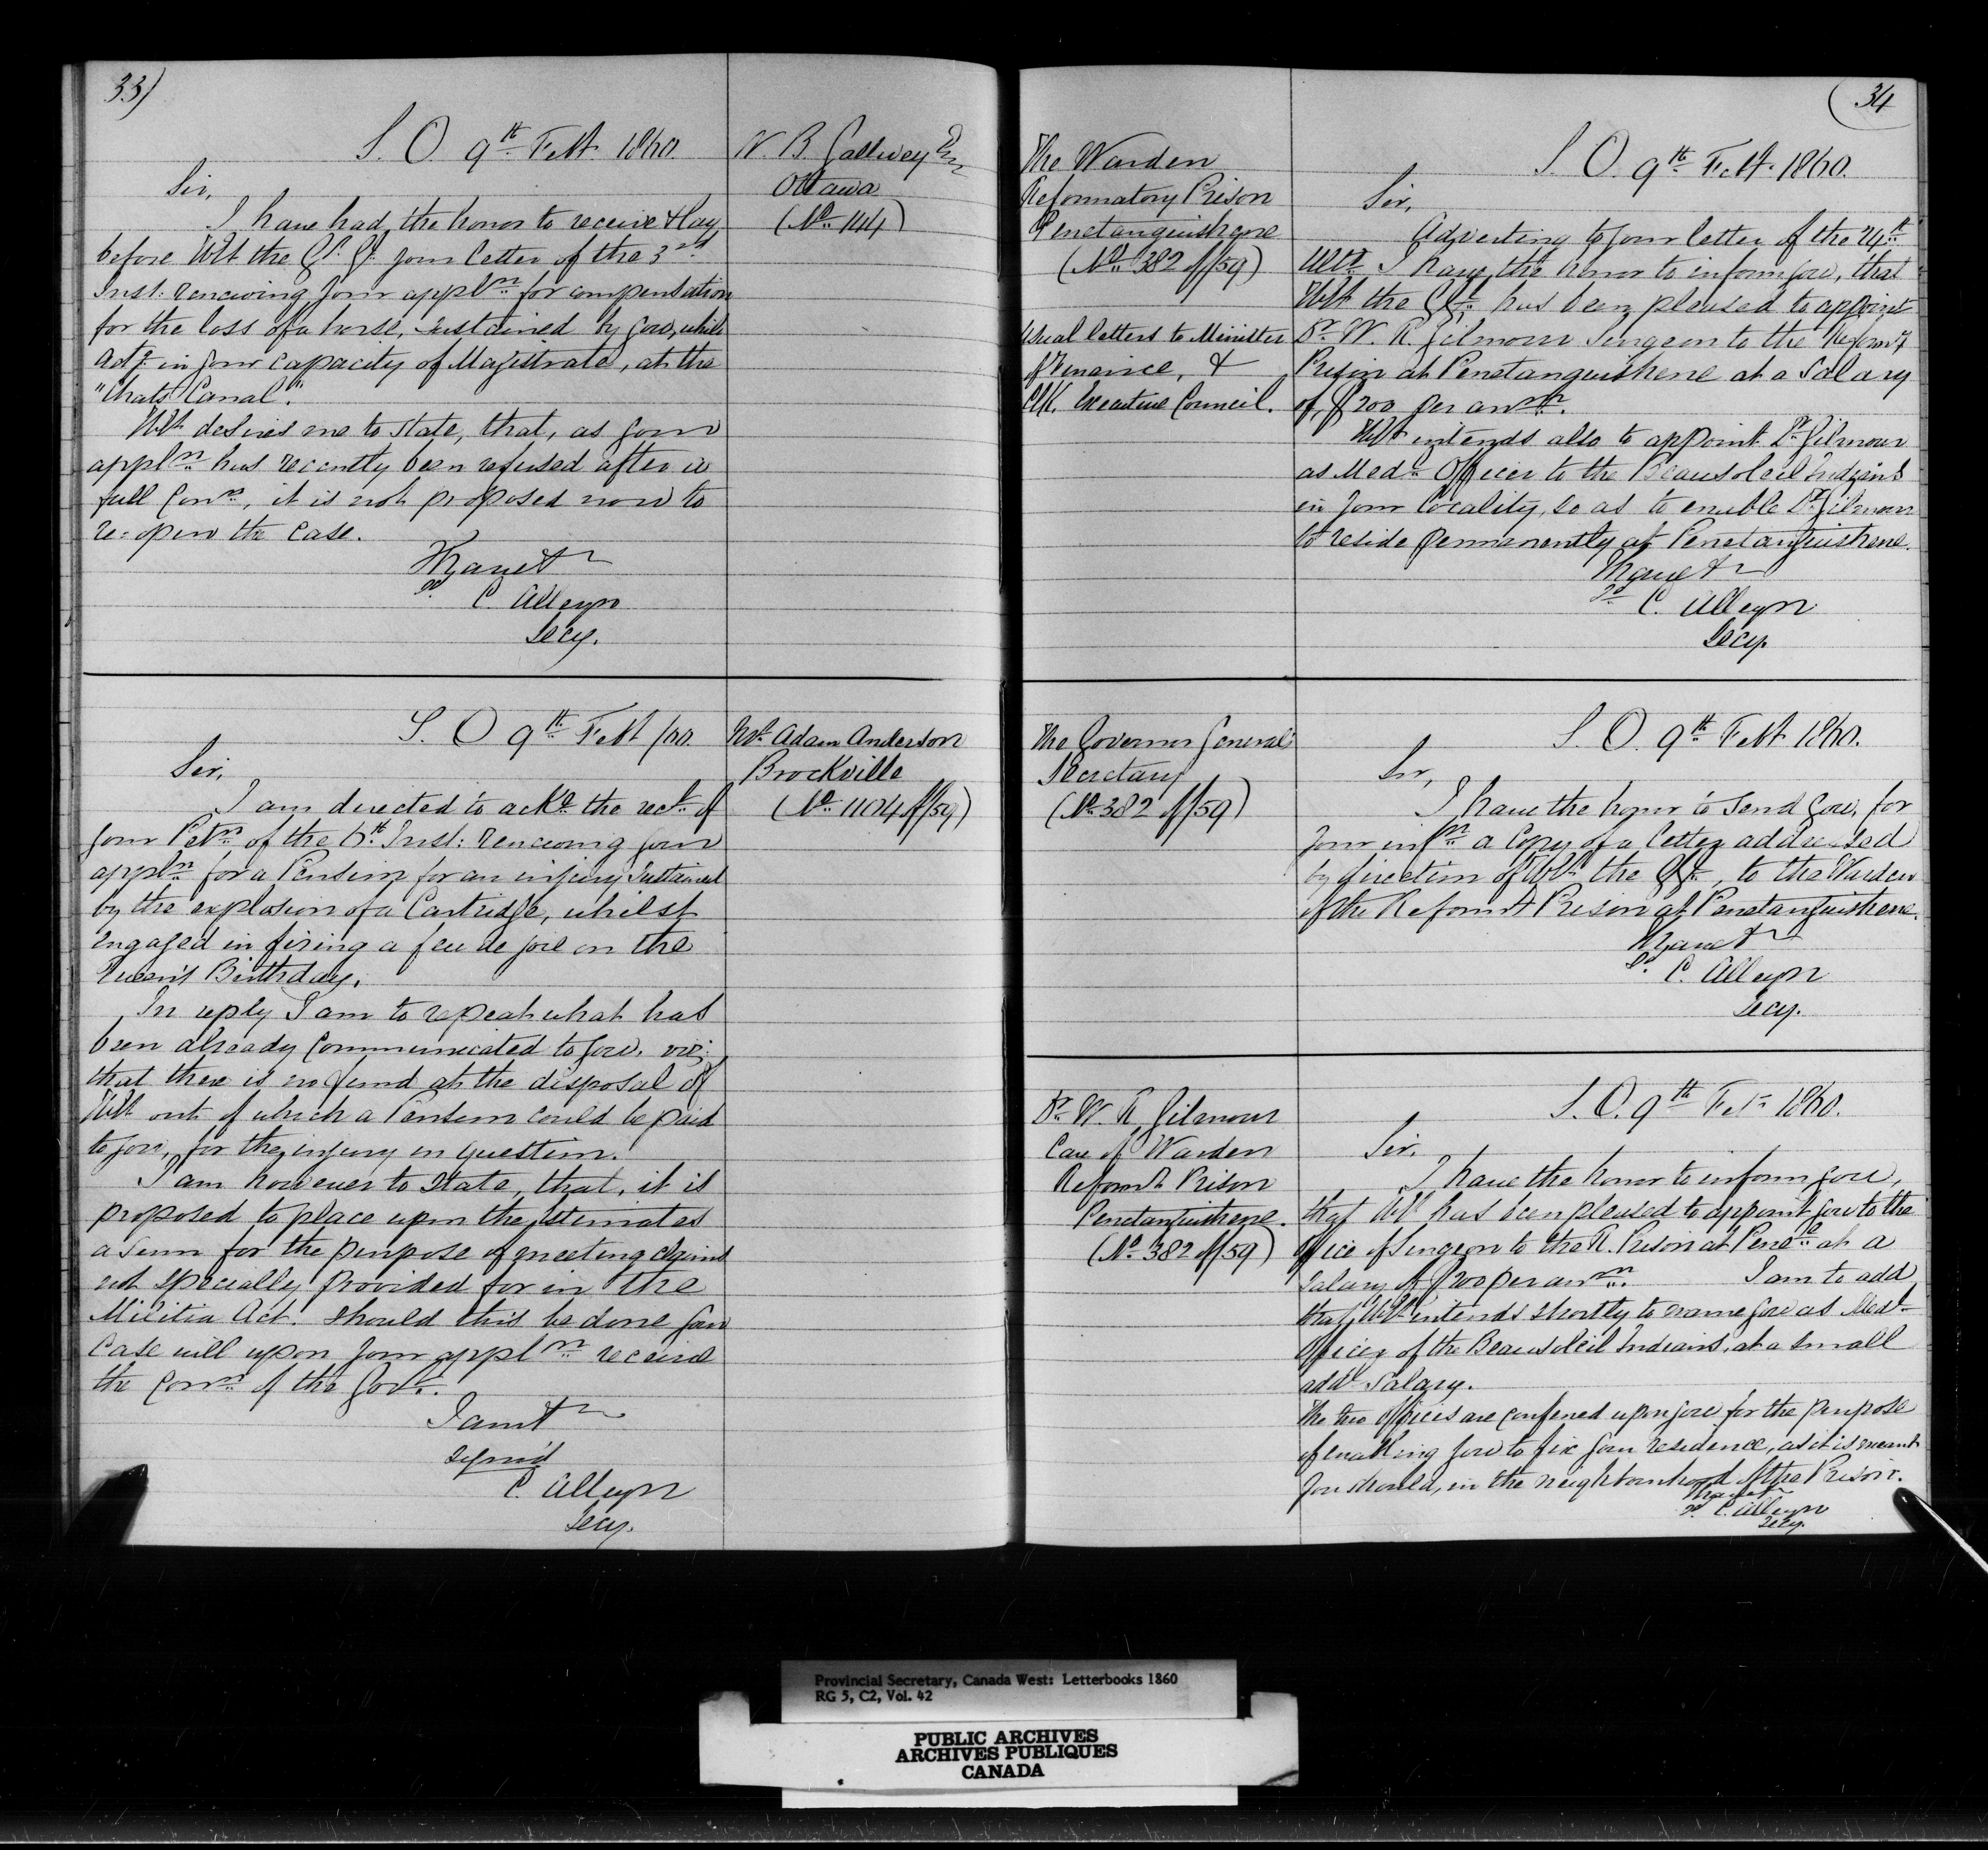 33)
S. O. 9th Feb. 1860.
N. B. Gallwey Esq
Ottawa
(No. 144)
Sir,
I have had the honor to receive & lay
before HE the Gr. Gl. your letter of the 3rd
Inst: renewing your appln for compensation
for the loss of a horse, sustained by you, while
actg. in your capacity of Magistrate, at the
"Chats Canal".
HE desires me to state, that, as your
appln has recently been refused after a
full Conn, it is not proposed now to
re-open the case.
I have &
sd. C. Alleyn
Secy.
S. O. 9th Feb /60.
Mr. Adam Anderson
Brockville
(No. 1104 of/59)
Sir,
I am directed to ackn. the rect. of
your Petn of the 6th Inst: renewing your
appln for a Pension for an injury sustained
by the explosion of a Cartridge, whilst
engaged in firing a feu de joie on the
Queen's Birthday.
In reply I am to repeat what has
been already communicated to you, viz:
that there is no fund at the disposal of
HE out of which a Pension could be paid
to you, for the injury in question.
I am however to state, that, it is
proposed to place upon the Estimates
a sum for the purpose of meeting claims
not specially provided for in the
Militia Act. Should this be done your
case will upon your appln receive
the Conn of the Govt.
I am &
signd
C. Alleyn
Secy.
34
The Warden
Reformatory Prison
Penetanguishene
(No. 382 of/59)
Usual letters to Minister
of Finance, &
Clk. Executive Council.
S. O. 9th Feb. 1860.
Sir,
Adverting to your letter of the 24th
Ulto. I have the honor to inform you, that
HE the GG. has been pleased to appoint
Dr. W. R. Gilmour Surgeon to the Reformy
Prison at Penetanguishene at a salary
of, $200 per annm.
HE intends also to appoint Dr. Gilmour
as Medl. Officer to the Beausoleil Indians
in your locality, so as to enable Dr. Gilmour
to reside permanently at Penetanguishene.
I have &
sd. C. Alleyn
Secy.
The Governor General's
Secretary
(No. 382 of/59)
S. O. 9th Feb 1860.
Sir,
I have the honor to send you, for
your infn a copy of a letter addressed
by direction of HE the GG., to the Warden
of the Reformy Prison at Penetanguishene.
I have &
sd. C. Alleyn
Secy.
Dr. W. R. Gilmour
Care of Warden
Reformy Prison
Penetanguishene.
(No. 382 of/59)
S. O. 9th Feb. 1860.
Sir,
I have the honor to inform you,
that HE has been pleased to appoint you to the
office of Surgeon to the R. Prison at Pene. at a
salary of $200 per annm. I am to add
that, HE intends shortly to name you as Medl.
Officer of the Beausoleil Indians, at a small
addl. salary.
The two offices are conferred upon you for the purpose
of enabling you to fix your residence, as it is meant
you should, in the neighbourhood of the Prison.
I have &
sd. C. Alleyn
Secy.
Provincial Secretary, Canada West: Letterbooks 1860
RG 5, C2, Vol. 42
PUBLIC ARCHIVES
ARCHIVES PUBLIQUES
CANADA